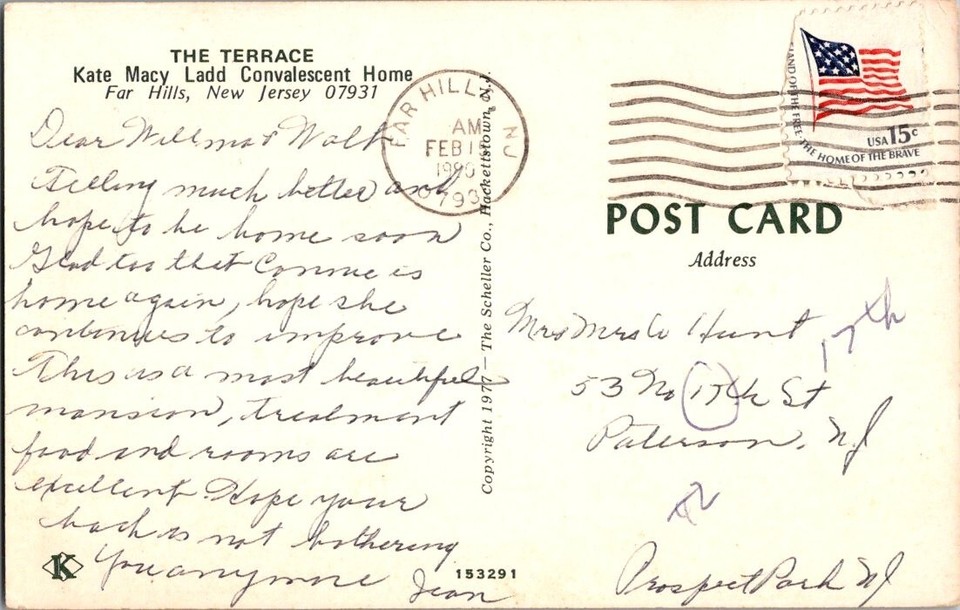 THE TERRACE
Kate Macy Ladd Convalescent Home
Far Hills, New Jersey 07931
Dear Wilma & Walt
Feeling much better and
hope to be home soon
Glad too that Connie is
home again, hope she
continues to improve
This is a most beautiful
mansion, treatment
food and rooms are
excellent Hope your
back is not bothering
you anymore
Jean
K
153291
Copyright 1977 — The Scheller Co., Hackettstown, N.J.
FAR HILLS, NJ
AM
FEB
1980
0793
LAND OF THE FREE · THE HOME OF THE BRAVE
USA 15c
POST CARD
Address
Mrs W Hunt
17th
53 No 17th St
Paterson, NJ
Prospect Park NJ